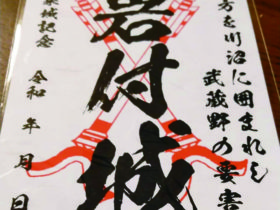 方を川沼に囲まれし
武蔵野の要害
岩付城
城記念
令和 年 月 日